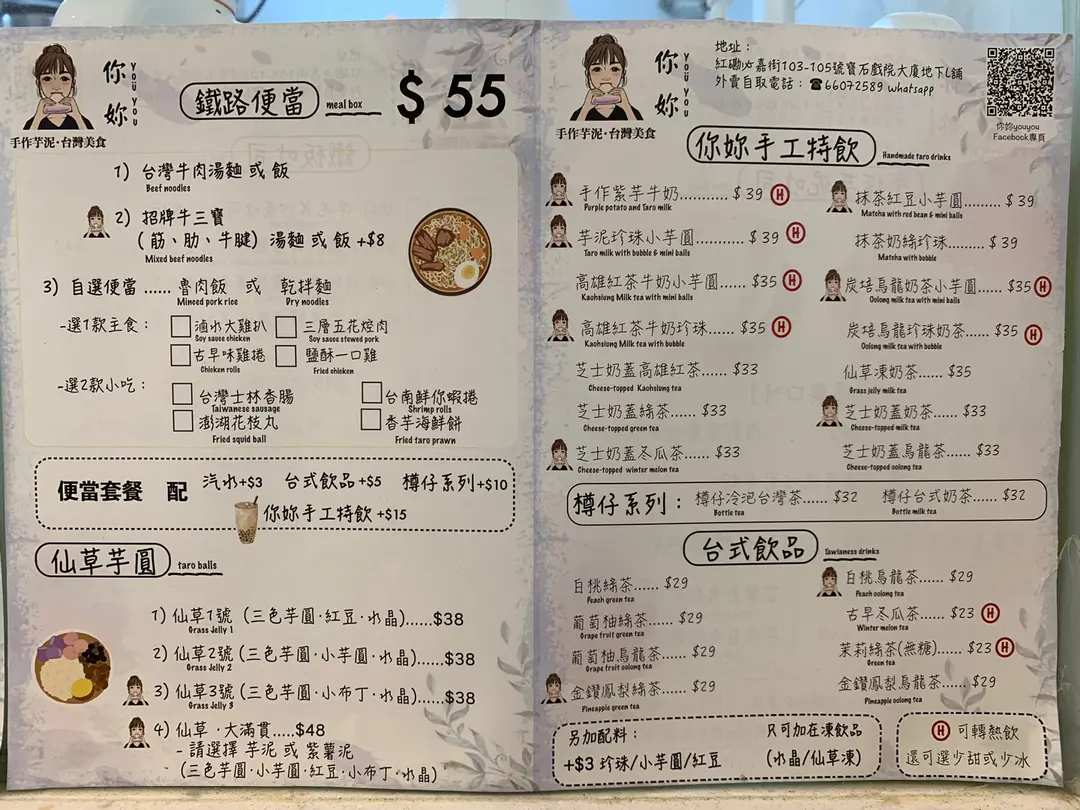 你妳
YOU YOU
手作芋泥·台灣美食
鐵路便當 meal box $ 55
1) 台灣牛肉湯麵 或 飯
Beef noodles
2) 招牌牛三寶
(筋、肋、牛腱) 湯麵 或 飯 +$8
Mixed beef noodles
3) 自選便當 ...... 魯肉飯 或 乾拌麵
Minced pork rice Dry noodles
-選1款主食: 滷水大雞扒 三層五花焢肉
Soy sauce chicken Soy sauce stewed pork
古早味雞捲 鹽酥一口雞
Chicken rolls Fried chicken
-選2款小吃: 台灣士林香腸 台南鮮你蝦捲
Taiwanese sausage Shrimp rolls
澎湖花枝丸 香芋海鮮餅
Fried squid ball Fried taro prawn
便當套餐 配 汽水+$3 台式飲品+$5 樽仔系列+$10
你妳手工特飲 +$15
仙草芋圓 taro balls
1) 仙草1號 (三色芋圓·紅豆·水晶)......$38
Grass Jelly 1
2) 仙草2號 (三色芋圓·小芋圓·水晶)......$38
Grass Jelly 2
3) 仙草3號 (三色芋圓·小布丁·水晶)......$38
Grass Jelly 3
4) 仙草·大滿貫.....$48
- 請選擇 芋泥 或 紫薯泥
(三色芋圓·小芋圓·紅豆·小布丁·水晶)
你妳
YOU YOU
手作芋泥·台灣美食
地址:
紅磡必嘉街103-105號寶石戲院大廈地下L舖
外賣自取電話: ☎66072589 whatsapp
你妳youyou
Facebook專頁
你妳手工特飲 Handmade taro drinks
手作紫芋牛奶........... $ 39 H
Purple potato and Taro milk
抹茶紅豆小芋圓...... $ 39
Matcha with red bean & mini balls
芋泥珍珠小芋圓........... $ 39 H
Taro milk with bubble & mini balls
抹茶奶綠珍珠...... $ 39
Matcha with bubble
高雄紅茶牛奶小芋圓...... $35 H
Kaohsiung Milk tea with mini balls
炭培烏龍奶茶小芋圓...... $35 H
Oolong milk tea with mini balls
高雄紅茶牛奶珍珠...... $35 H
Kaohsiung Milk tea with bubble
炭培烏龍珍珠奶茶...... $35 H
Oolong milk tea with bubble
芝士奶蓋高雄紅茶...... $33
Cheese-topped Kaohsiung tea
仙草凍奶茶...... $35
Grass jelly milk tea
芝士奶蓋綠茶...... $33
Cheese-topped green tea
芝士奶蓋奶茶...... $33
Cheese-topped milk tea
芝士奶蓋冬瓜茶...... $33
Cheese-topped winter melon tea
芝士奶蓋烏龍茶...... $33
Cheese-topped oolong tea
樽仔系列: 樽仔冷泡台灣茶...... $32 樽仔台式奶茶...... $32
Bottle tea Bottle milk tea
台式飲品 Tawianess drinks
白桃綠茶...... $29
Peach green tea
白桃烏龍茶...... $29
Peach oolong tea
葡萄柚綠茶...... $29
Grape fruit green tea
古早冬瓜茶...... $23 H
Winter melon tea
葡萄柚烏龍茶...... $29
Grape fruit oolong tea
茉莉綠茶(無糖)...... $23 H
Green tea
金鑽鳳梨綠茶...... $29
Pineapple green tea
金鑽鳳梨烏龍茶...... $29
Pineapple oolong tea
另加配料: 只可加在凍飲品
+$3 珍珠/小芋圓/紅豆 (水晶/仙草凍)
H 可轉熱飲
還可選少甜或少冰